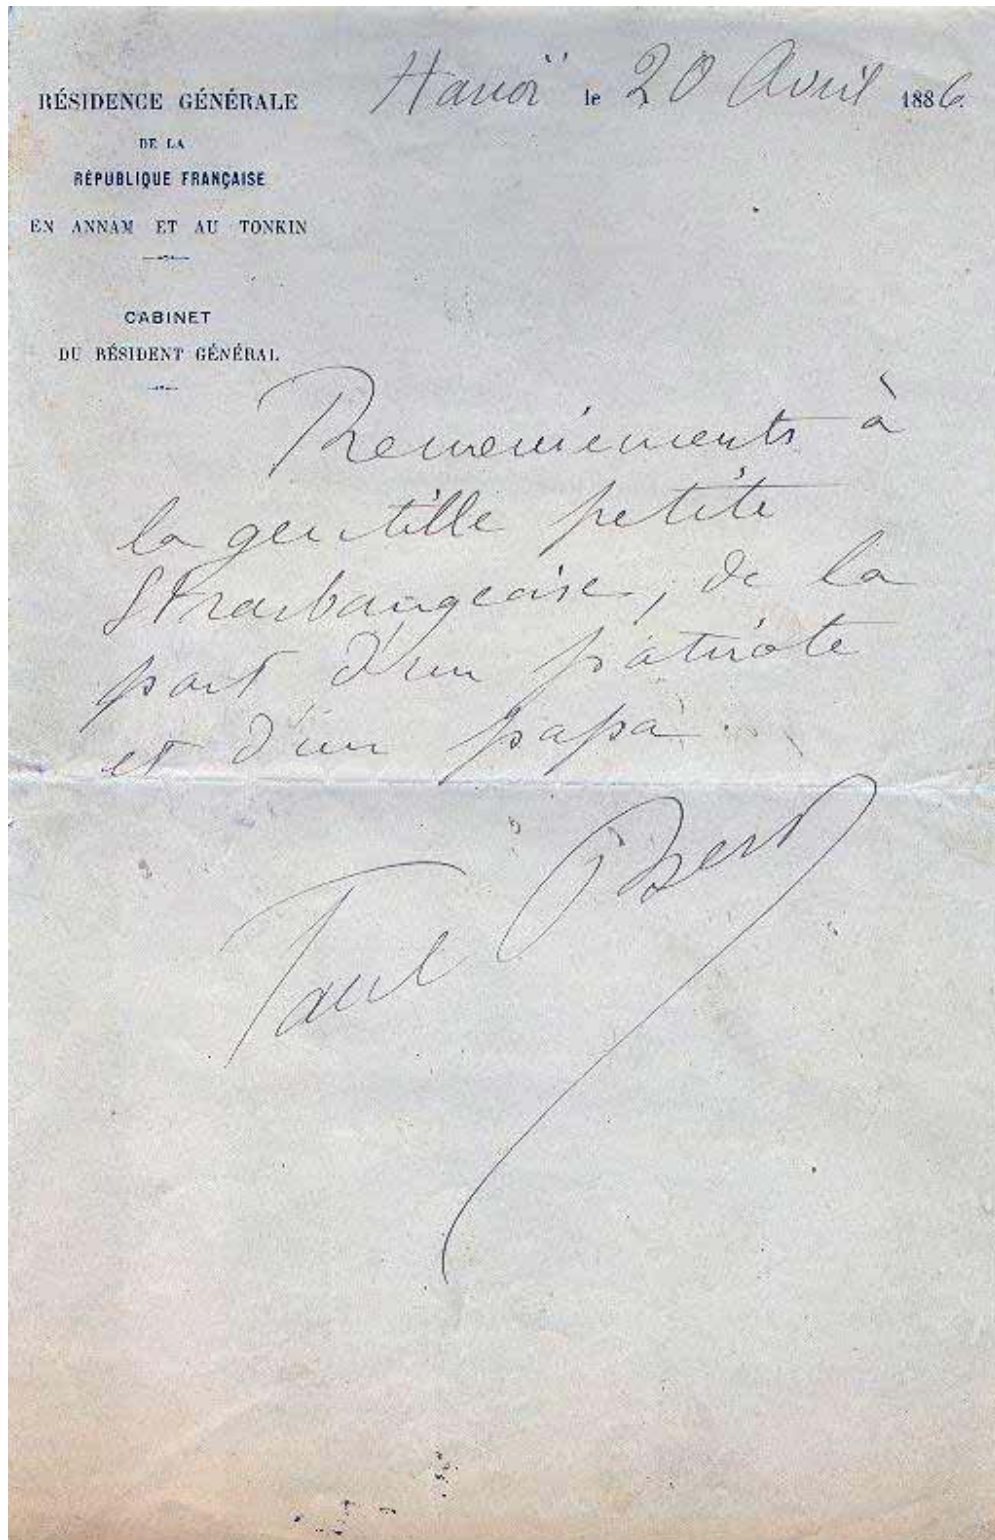 RÉSIDENCE GÉNÉRALE
DE LA
RÉPUBLIQUE FRANÇAISE
EN ANNAM ET AU TONKIN
CABINET
DU RÉSIDENT GÉNÉRAL
Hanoï le 20 Avril 1886
Remerciements à
la gentille petite
Strasbourgeoise, de la
part d'un patriote
et d'un papa.
Paul Bert